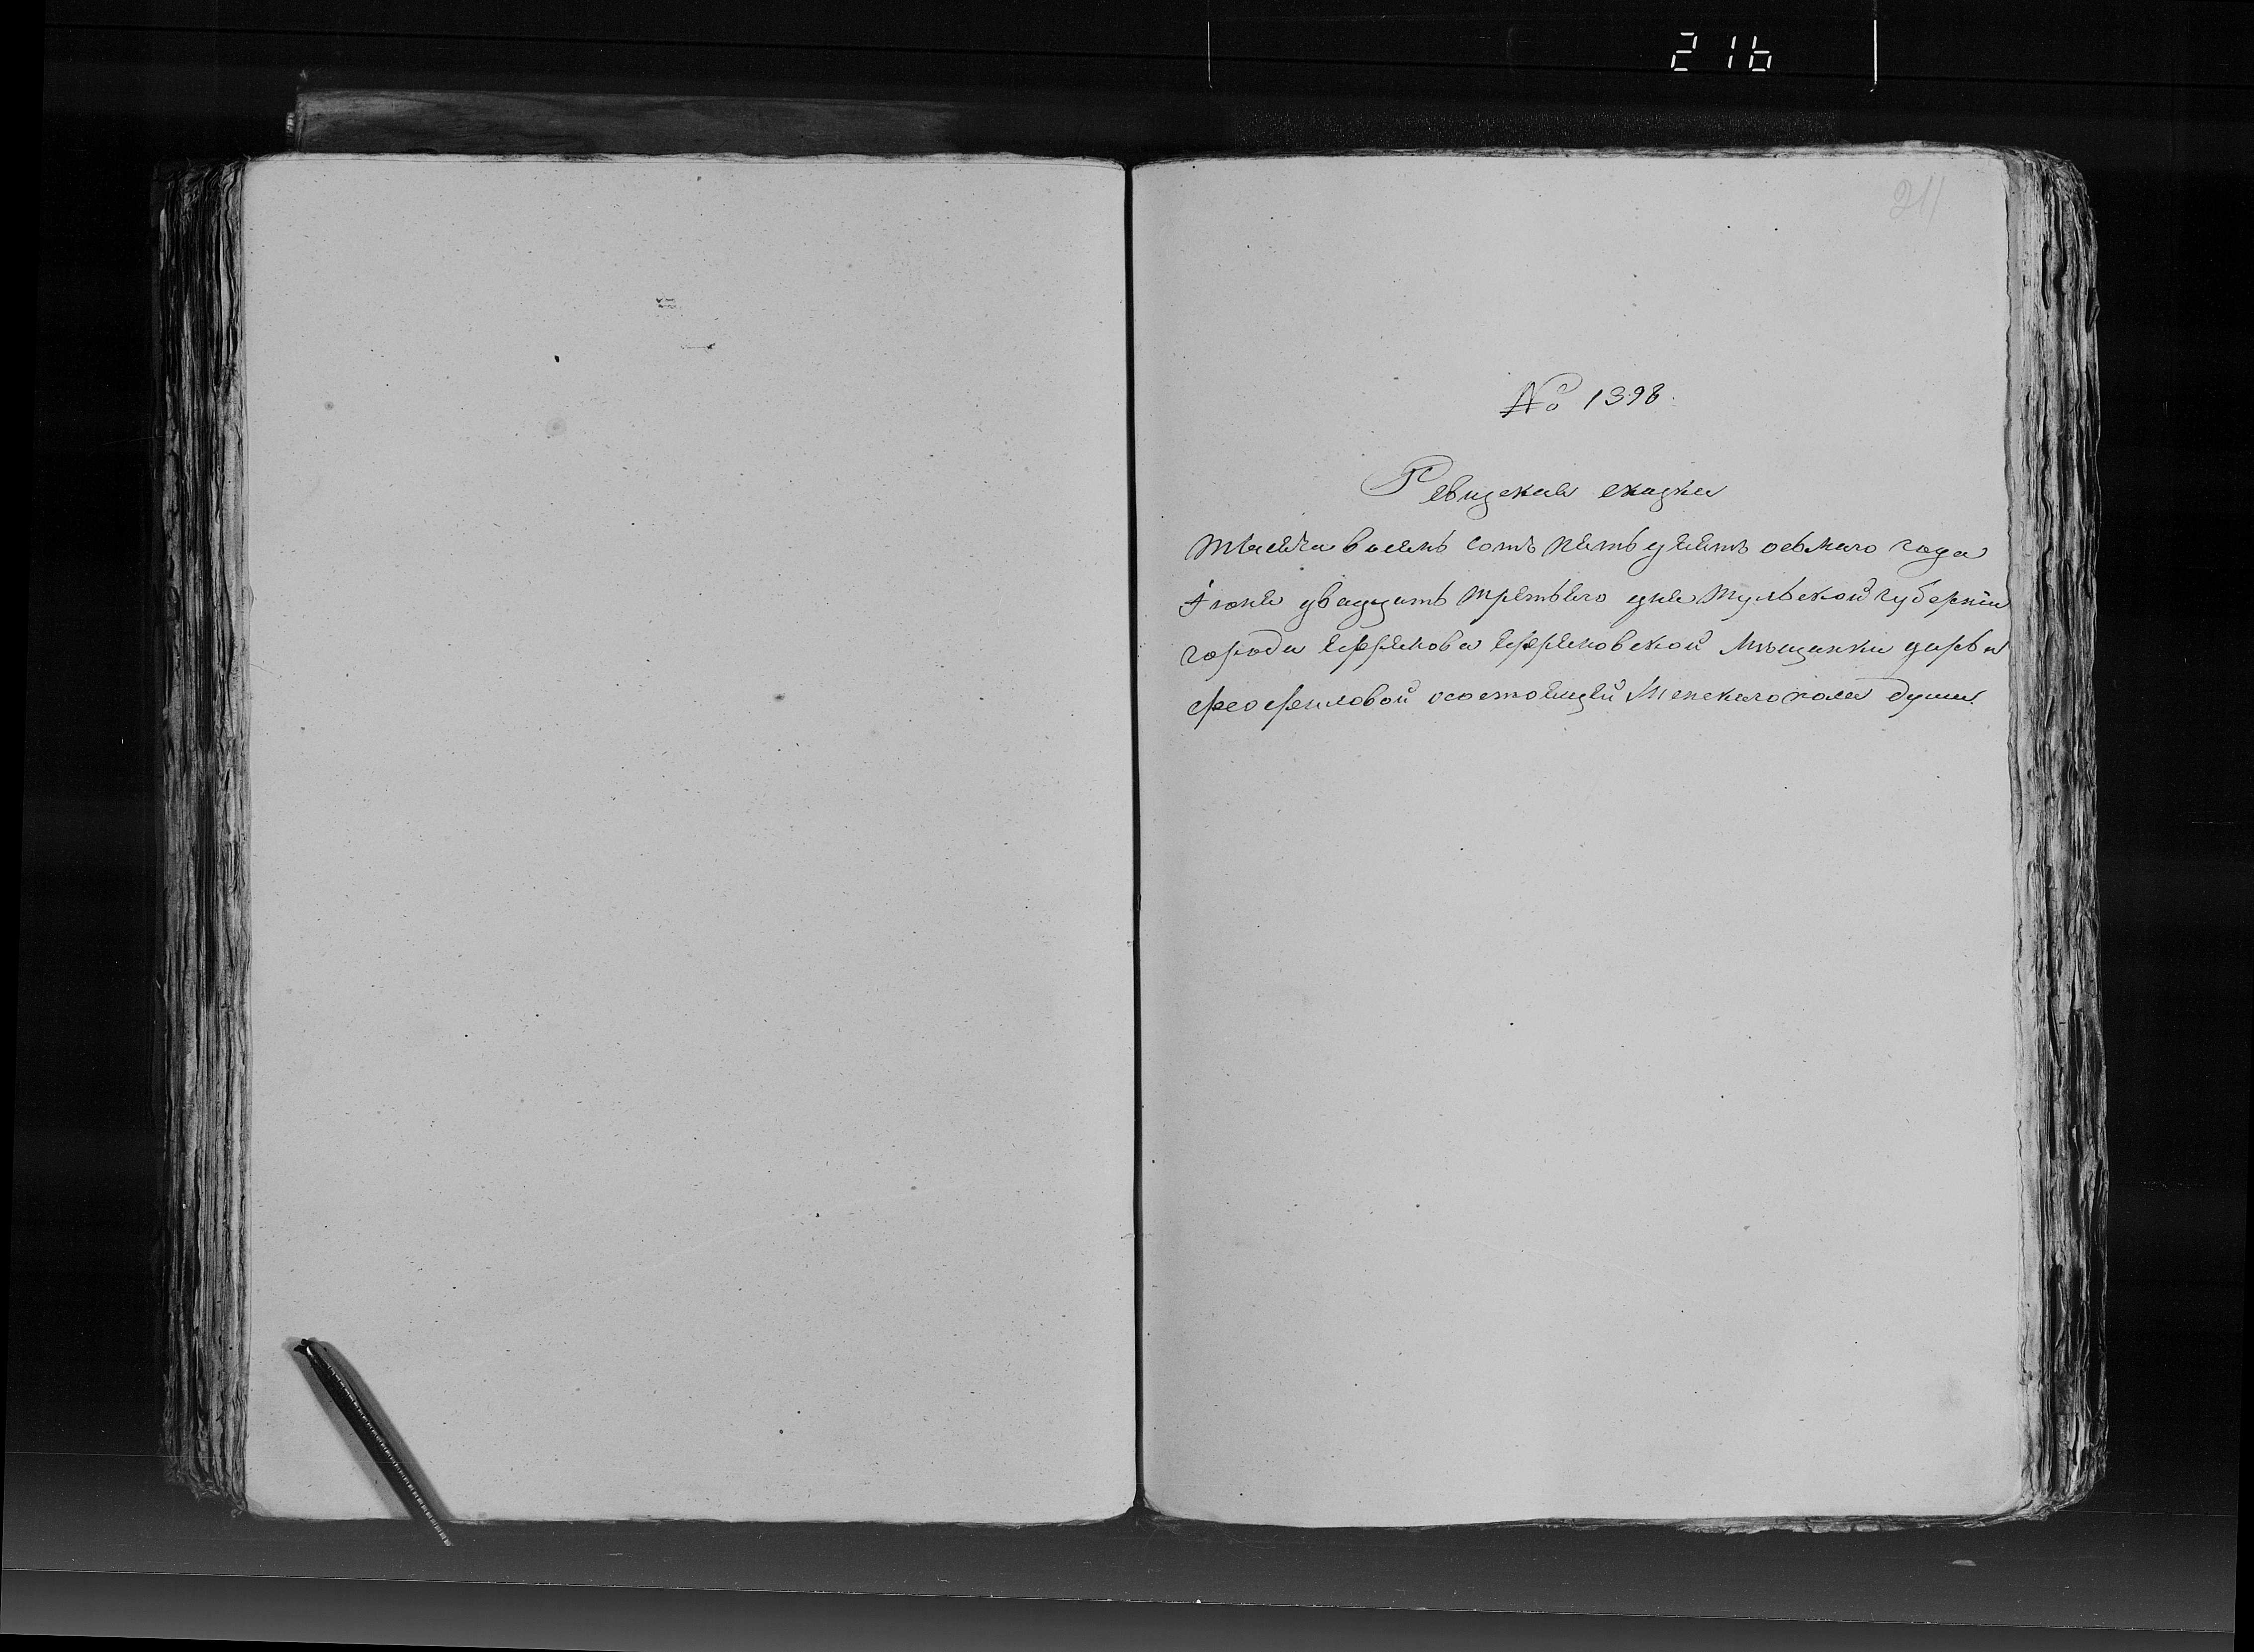 216
211
№ 1398.
Ревизская сказка
тысяча восемь сотъ пятьдесятъ осьмаго года
Iюня двадцать третьяго дня Тульской губернiи
города Ефремова Ефремовской Мѣщанки дарьи
феофиловой осостоящей Женскаго пола души